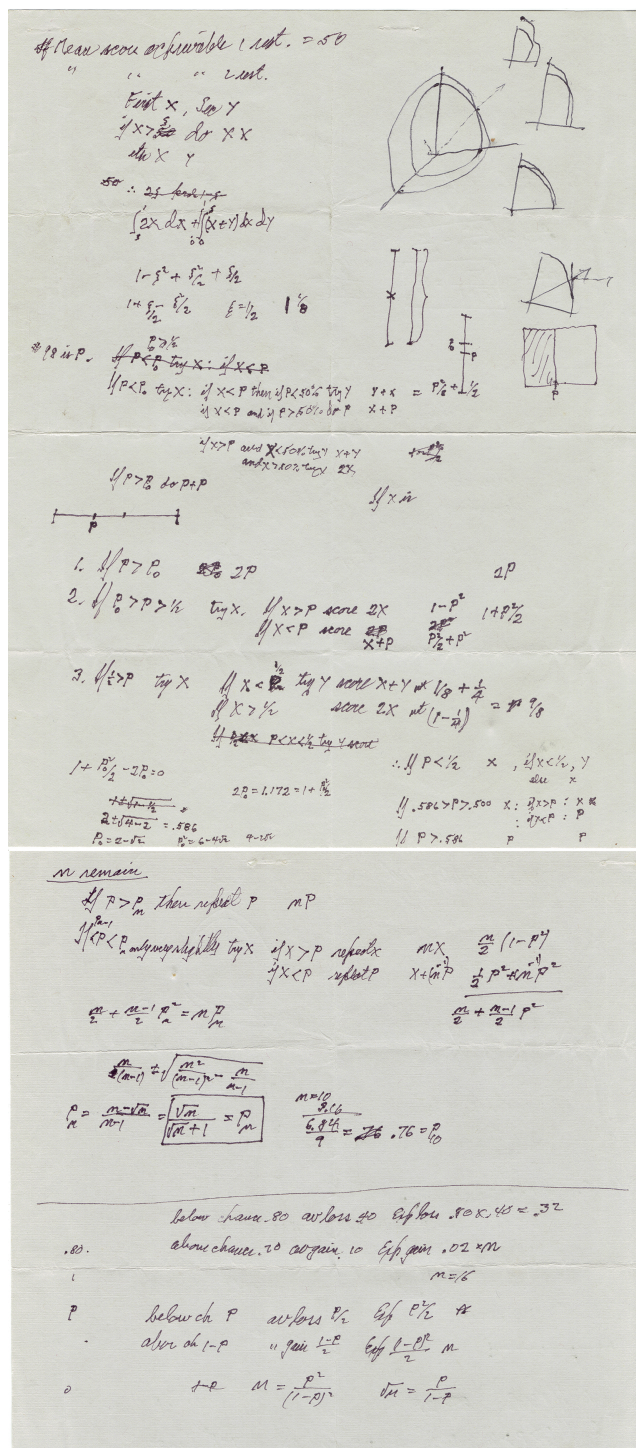 Mean score achievable 1 rest. = 50
" " " 2 rest.
First X, Sec Y
if X > ξ do X X
X Y
∫2X dX + ∫∫(X+Y) dX dY
1 - ξ² + ξ²/2 + ξ/2
1 + ξ/2 - ξ²/2 ξ = 1/2 1 1/8
is P. P₀ ≥ 1/2
If P < P₀ try X: if X ≤ P
If P < P₀ try X: if X < P then if P < 50% try Y Y + X = P²/2 + 1/2
if X < P and if P > 50% do P X + P
if X > P and X < 50% try Y X + Y
and X > 50% try X 2X
If P > P₀ do P + P
If X is
P
1. If P > P₀ 2P 2P
2. If P₀ > P > 1/2 try X. If X > P score 2X 1 - P² 1 + P²/2
If X < P score X + P P²/2 + P²
3. If 1/2 > P try X If X < 1/2 try Y score X + Y wt 1/8 + 1/4
If X > 1/2 score 2X wt = 9/8
P < X < 1/2 try Y score
∴ If P < 1/2 X, if X < 1/2, Y
else X
1 + P₀²/2 - 2P₀ = 0
2P₀ = 1.172 = 1 + P₀²/2
2 ± √4-2 = .586
If .586 > P > .500 X: if X > P : X
: if X < P : P
P₀ = 2 - √2 P₀² = 6 - 4√2
If P > .586 P P
n remain
If P > Pₙ then repeat P nP
If Pₙ₋₁ < P < Pₙ only very slightly try X if X > P repeat X nX n/2 (1 - P²)
if X < P repeat P X + (n-1)P 1/2 P² + (n-1)P²
n/2 + n-1/2 Pₙ² = n Pₙ
n/2 + n-1/2 P²
n/(n-1) ± √n²/(n-1)² - n/n-1
Pₙ = n-√n/n-1 = √n/√n+1 = Pₙ
n = 10
3.16
6.84/9 = .76 = P₁₀
below chance .80 av loss .40 Exp loss .80 x .40 = .32
.80. above chance .20 av gain .10 Exp gain .02 x n
1 n = 16
P below ch P av loss P/2 Exp P²/2
above ch 1-P " gain 1-P/2 Exp (1-P)²/2 n
0 n = P²/(1-P)² √n = P/1-P